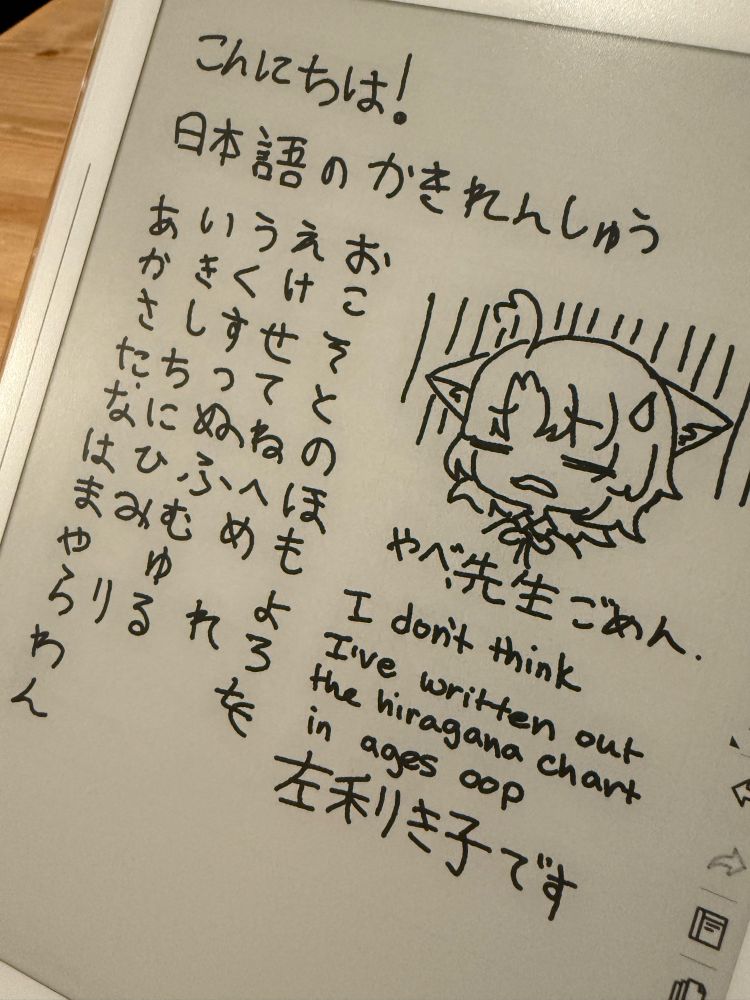 こんにちは!
日本語のかきれんしゅう
あいうえお
かきくけこ
さしすせそ
たちつてと
なにぬねの
はひふへほ
まみむめも
やゆよ
らりるれろ
わを
ん
やべ、先生ごめん.
I don't think
I've written out
the hiragana chart
in ages oop
左利き子です